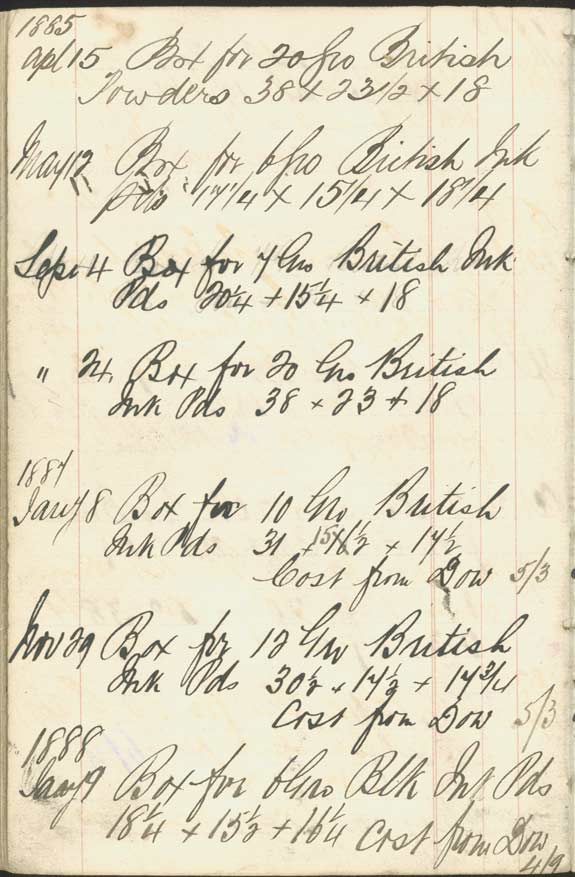 1885
Apl 15 Box for 20 Gro British
Powders 38 x 23 1/2 x 18
May 12 Box for 6 Gro British Ink
Pds 17 1/4 x 15 1/4 x 18 1/4
Sept 4 Box for 7 Gro British Ink
Pds 20 1/4 + 15 1/4 + 18
" 24 Box for 20 Gro British
Ink Pds 38 x 23 + 18
1887
Jany 8 Box for 10 Gro British
Ink Pds 31 x 15 1/2 x 17 1/2
Cost from Dow 5/3
Nov 29 Box for 12 Gro British
Ink Pds 30 1/2 x 17 1/2 + 17 3/4
Cost from Dow 5/3
1888
Jany 9 Box for 6 Gro Blk Ink Pds
18 1/4 x 15 1/2 + 16 1/4 Cost from Dow
4/9